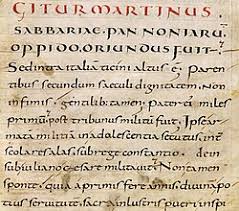 GITUR MARTINUS.
SABBARIAE. PANNONIARU.
OPPIDO. ORIUNDUS FUIT.
Sed intra italiā ticini altus ē; Paren
tibus secundum saeculi dignitatem. Non
infimis. gentilib; tamen. Pater ei miles
primū post tribunus militū fuit. Ipse ar
matā militiā in adolescentia secutus int
scolares alas sub rege constantio. dein
sub iuliano cesare militavit. Non tamen
sponte. quia a primis fere annis divina potius